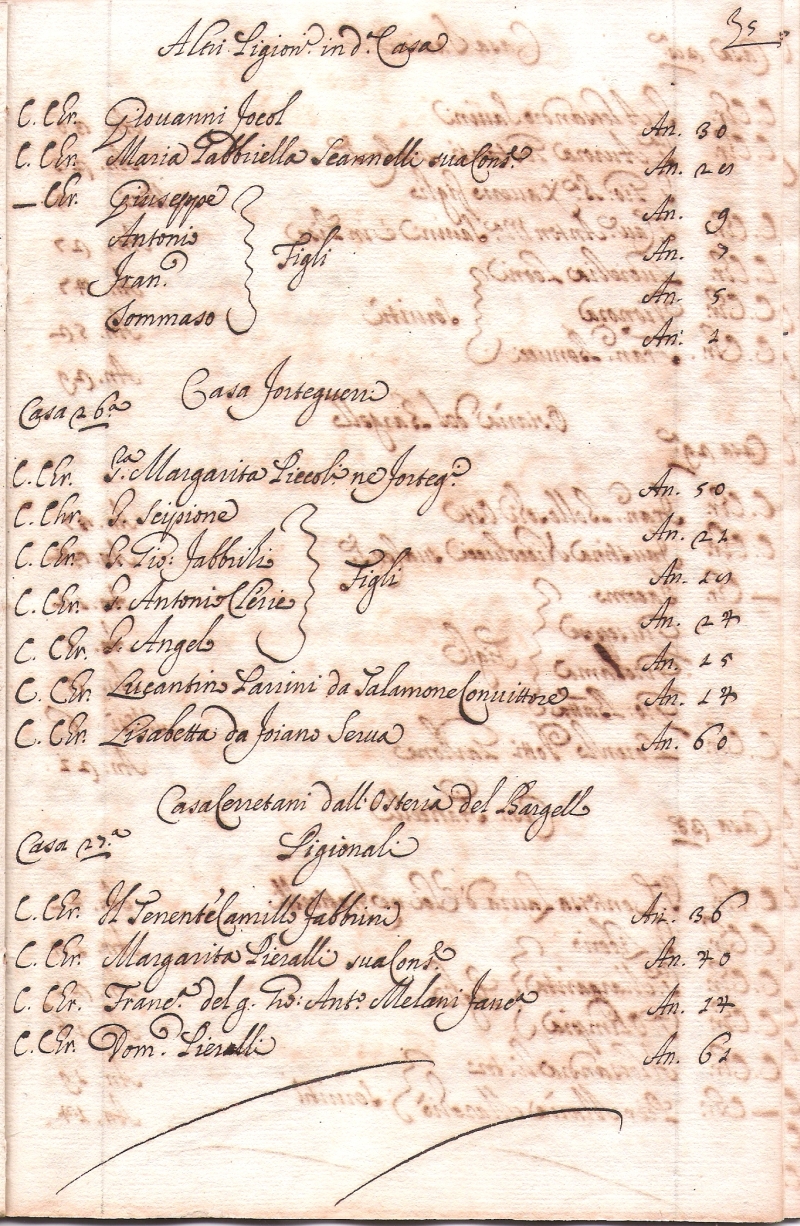 35
Altri Pigion.i in d.a Casa
C. Chr. Giovanni An. 30
C. Chr. Maria Gabbriella Giannelli sua Cons.e An. 29
— Chr. Giuseppe An. 9
Antonio An. 7
Fran.o Figli An. 5
Tommaso An. 2
Casa Forteguerri
Casa 26.a
C. Chr. S.ra Margarita Piccol.ni ne Forteg.i An. 50
C. Chr. S. Scipione An. 22
C. Chr. S. Gio: An.
C. Chr. S. Antonio Figli An. 24
C. Chr. S. Angelo An. 15
C. Chr. Lucantonio Parrini da Talamone Convittore An. 14
C. Chr. Lisabetta da Foiano Serva An. 60
Casa Cerretani dall' Osteria del Bargello
Casa 27.a Pigionali
C. Chr. Il Tenente Camillo Fabbrini An. 36
C. Chr. Margarita Pieralli sua Cons.e An. 40
C. Chr. Franc.o del q. Gio: Ant.o Melani An. 14
C. Chr. Dom.o Pieralli An. 62